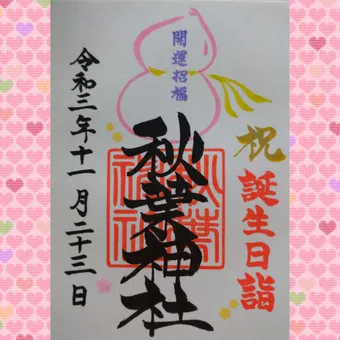 祝
誕生日詣
開運招福
秋葉神社
令和三年十一月二十三日